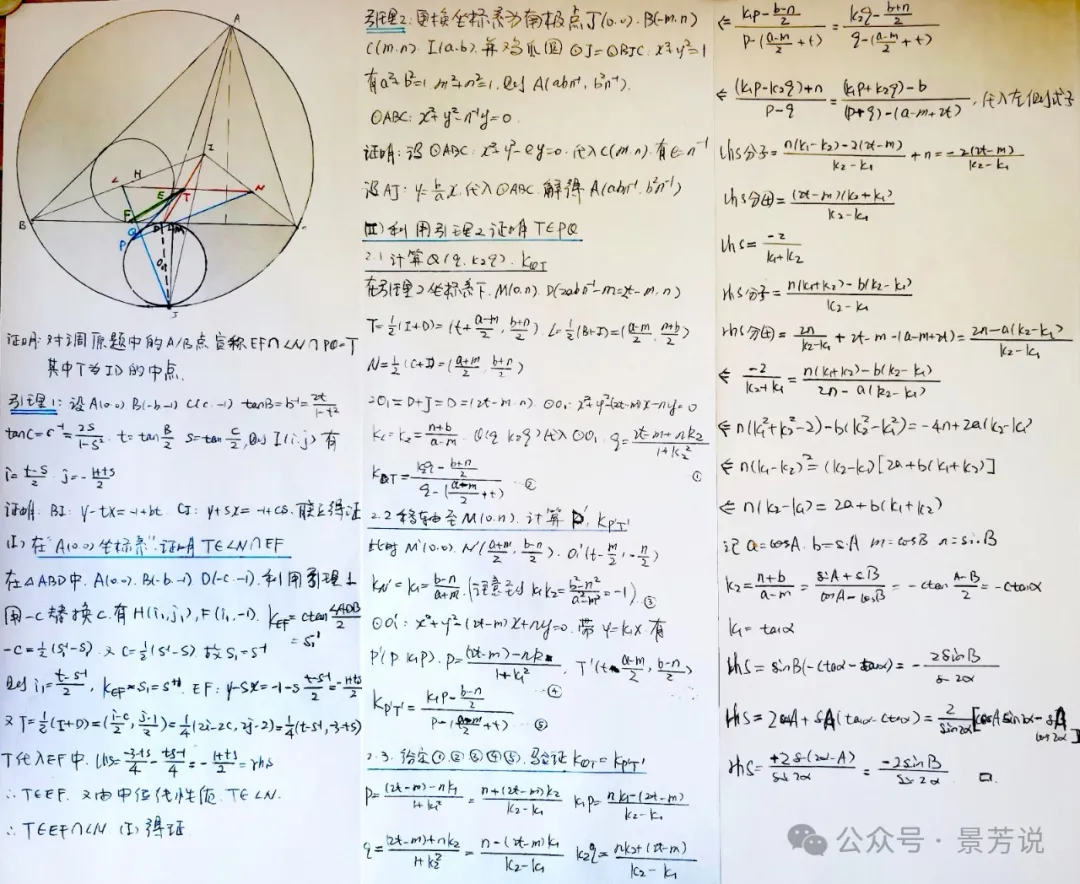 A
I
L
H
E
T
N
F
B
Q
D
M
P
O₁
J
证明:对调原题中的A/B点宣称EF∩LN∩PQ=T
其中T为ID的中点.
引理1:设A(0,0) B(-b,-1) C(c,-1) tanB=b⁻¹=2t/(1-t²)
tanC=c⁻¹=2s/(1-s²). t=tan B/2 s=tan C/2,则I(i,j)有
i=(t-s)/2 j=-(1+ts)/2
证明:BI: y-tx=-1+bt. CI: y+sx=-1+cs.联立得证
(I)在"A(0,0)坐标系"证明T∈LN∩EF
在△ABD中,A(0,0),B(-b,-1) D(-c,-1),利用引理1
用-c替换c,有H(i₁,j₁),F(i₁,-1). k_EF=ctan ∠ADB/2 = s₁⁻¹
-C=½(s₁⁻¹-s₁).又C=½(s⁻¹-s)故s₁=s⁻¹
则i₁=(t-s⁻¹)/2, k_EF=s₁=s⁻¹. EF: y-sx=-1-s·(t-s⁻¹)/2=-(1+ts)/2
又T=½(I+D)=((i-c)/2,(j-1)/2)=¼(2i-2c,2j-2)=¼(t-s⁻¹,-3-ts)
T代入EF中. lhs=(-3-ts)/4-(ts-1)/4=-(1+ts)/2=rhs
∴T∈EF.又由中位线性质,T∈LN.
∴T∈EF∩LN (I)得证
引理2:更换坐标系为南极点J(0,0).B(-m,n)
C(m,n).I(a,b).并鸡爪圆⊙J=⊙BJC: x²+y²=1
有a²+b²=1 m²+n²=1.则A(abn⁻¹,b²n⁻¹).
⊙ABC: x²+y²-n⁻¹y=0.
证明:设⊙ABC: x²+y²-ey=0.代入C(m,n).有e=n⁻¹
设AJ: y=b/a x.代入⊙ABC.解得A(abn⁻¹,b²n⁻¹)
(II)利用引理2证明T∈PQ
2.1计算Q(q,k₂q).k_QT
在引理2坐标系下.M(0,n).D(2abn⁻¹-m=2t-m,n)
T=½(I+D)=(t+(a-m)/2,(b+n)/2).L=½(B+I)=((a-m)/2,(n+b)/2)
N=½(C+I)=((a+m)/2,(b+n)/2)
2O₁=D+J=D=(2t-m,n) ⊙O₁: x²+y²-(2t-m)x-ny=0
k_L=k₂=(n+b)/(a-m). Q(q,k₂q)代入⊙O₁. q=(2t-m+nk₂)/(1+k₂²) ①
k_QT=(k₂q-(b+n)/2)/(q-((a-m)/2+t)) ②
2.2移轴至M(0,n).计算P',k_P'T'
此时M'(0,0).N'((a+m)/2,(b-n)/2).O₁'(t-m/2,-n/2)
k_N'=k₁=(b-n)/(a+m).(注意到k₁k₂=(b²-n²)/(a²-m²)=-1) ③
⊙O₁': x²+y²-(2t-m)x+ny=0.带y=k₁x有
P'(p,k₁p). p=((2t-m)-nk₁)/(1+k₁²). T'(t+(a-m)/2,(b-n)/2) ④
k_P'T'=(k₁p-(b-n)/2)/(p-((a-m)/2+t)) ⑤
2.3.给定①②③④⑤.验证k_QT=k_P'T'
p=((2t-m)-nk₁)/(1+k₁²)=(n+(2t-m)k₂)/(k₂-k₁) k₁p=(nk₁-(2t-m))/(k₂-k₁)
q=((2t-m)+nk₂)/(1+k₂²)=(n-(2t-m)k₁)/(k₂-k₁) k₂q=(nk₂+(2t-m))/(k₂-k₁)
⇐(k₁p-(b-n)/2)/(p-((a-m)/2+t))=(k₂q-(b+n)/2)/(q-((a-m)/2+t))
⇐((k₁p-k₂q)+n)/(p-q)=((k₁p+k₂q)-b)/((p+q)-(a-m+2t)),代入左侧式子
lhs分子=(n(k₁-k₂)-2(2t-m))/(k₂-k₁)+n=-2(2t-m)/(k₂-k₁)
lhs分母=(2t-m)(k₂+k₁)/(k₂-k₁)
lhs=-2/(k₁+k₂)
rhs分子=(n(k₁+k₂)-b(k₂-k₁))/(k₂-k₁)
rhs分母=2n/(k₂-k₁)+2t-m-(a-m+2t)=(2n-a(k₂-k₁))/(k₂-k₁)
⇐-2/(k₂+k₁)=(n(k₁+k₂)-b(k₂-k₁))/(2n-a(k₂-k₁))
⇐n(k₁²+k₂²-2)-b(k₂²-k₁²)=-4n+2a(k₂-k₁)
⇐n(k₁-k₂)²=(k₂-k₁)[2a+b(k₁+k₂)]
⇐n(k₂-k₁)=2a+b(k₁+k₂)
记a=cosA. b=sA m=cosB n=sinB
k₂=(n+b)/(a-m)=(sA+sB)/(cosA-cosB)=-ctan (A-B)/2=-ctanα
k₁=tanα
lhs=sinB(-ctα-tanα)=-2sinB/s2α
rhs=2cosA+sA(tanα-ctanα)=2/sin2α[cosA sin2α-sA cos2α]
rhs=+2s(2α-A)/s2α=-2sinB/s2α □.
公众号·景芳说